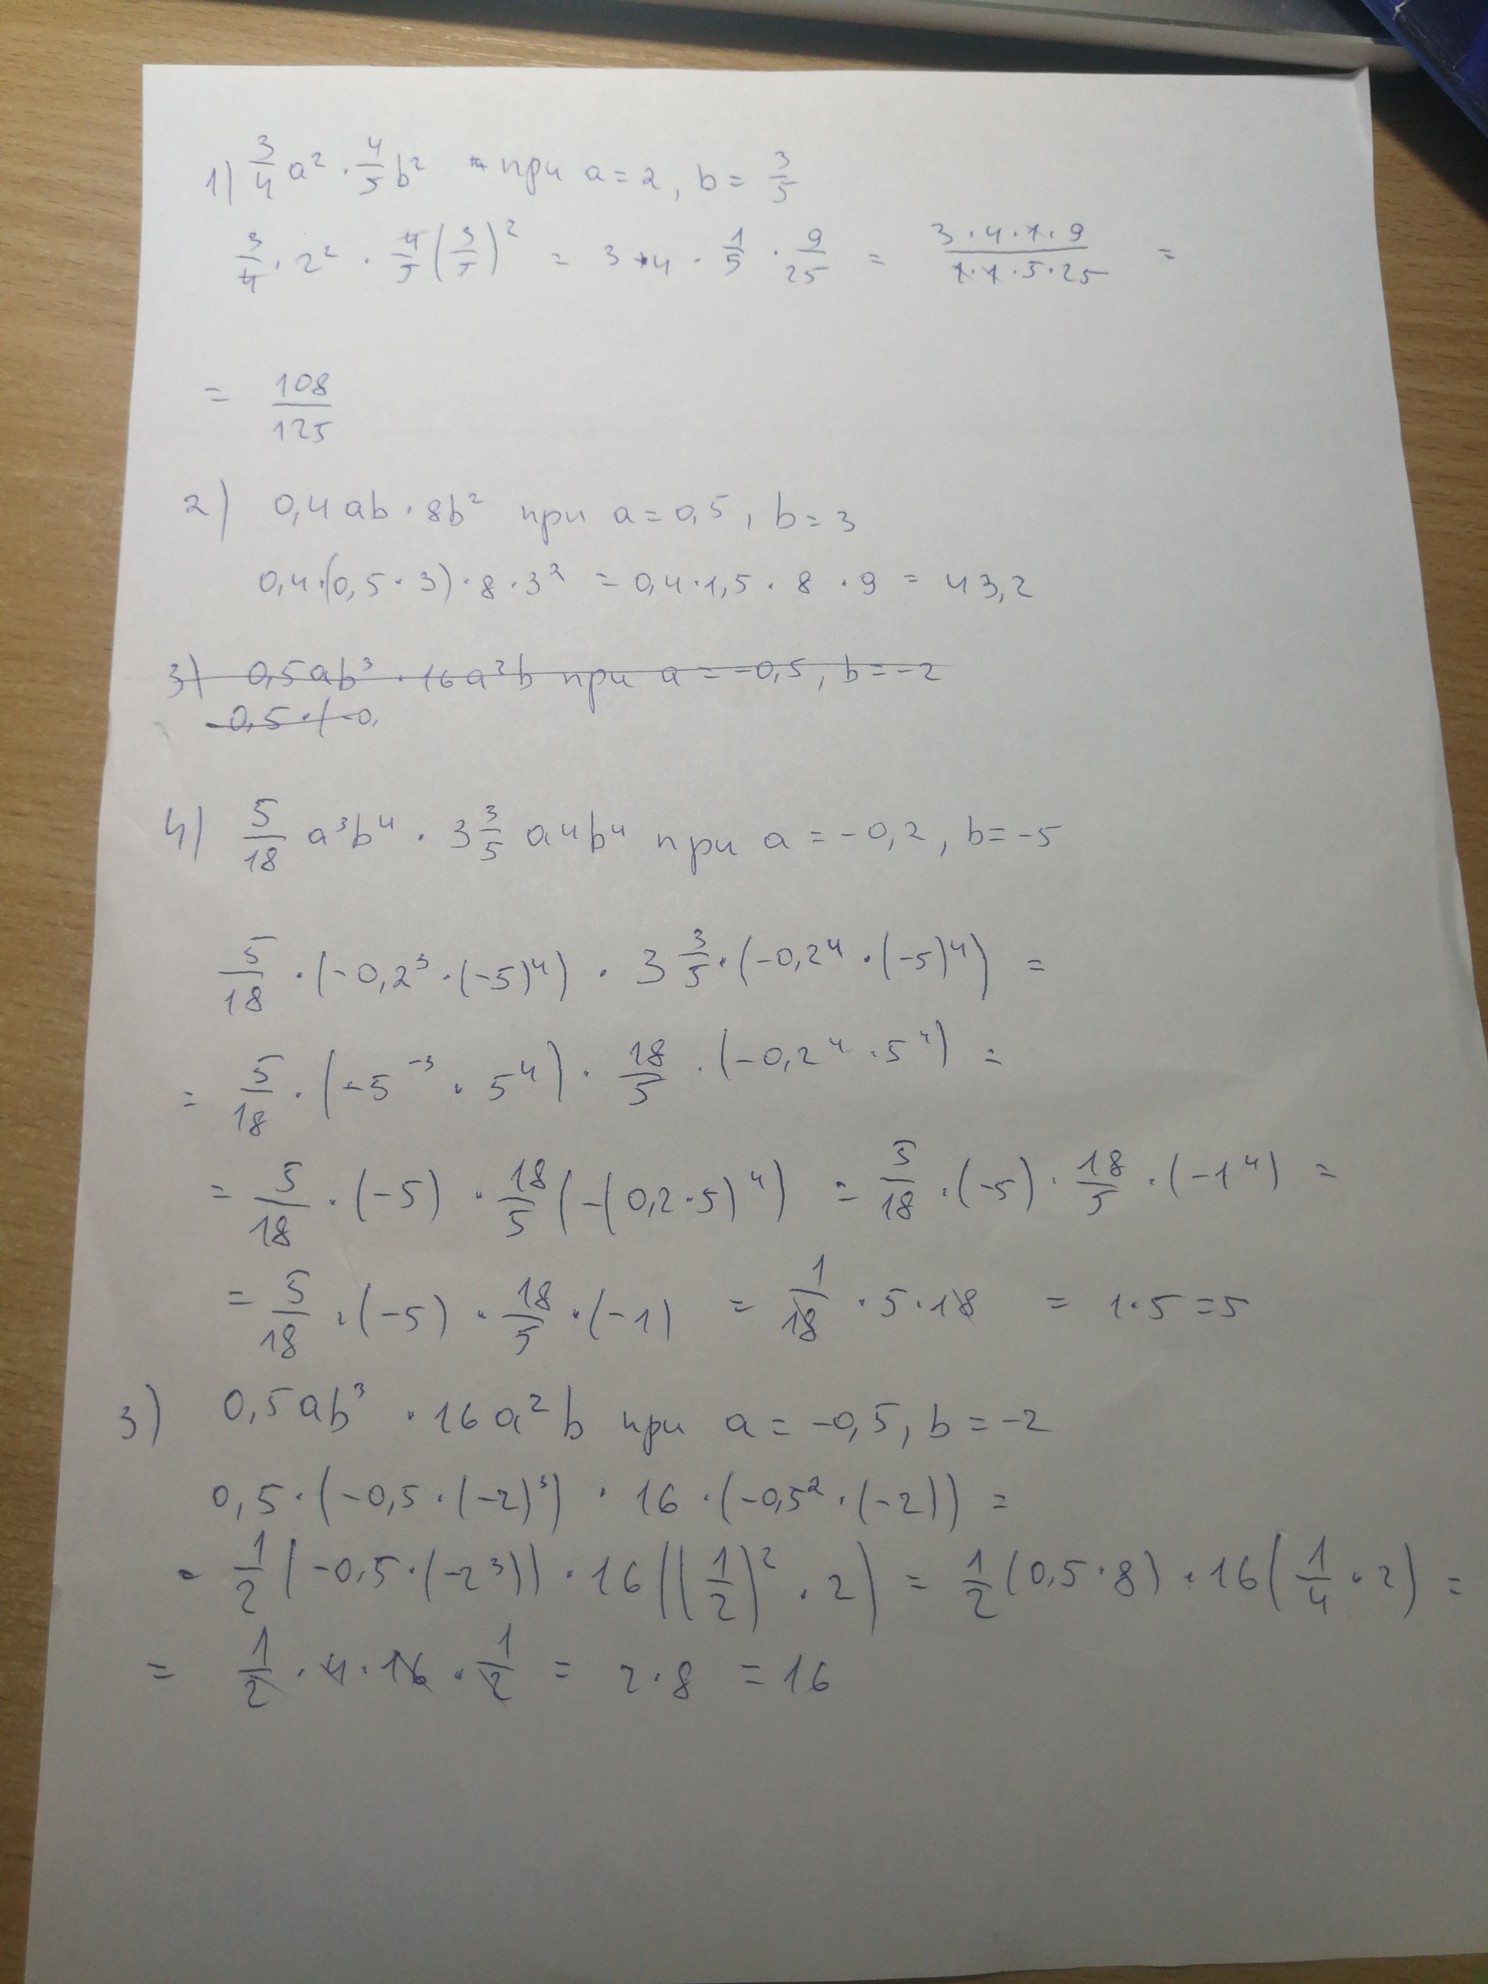 1) 3/4 a² · 4/5 b² при a = 2, b = 3/5
3/4 · 2² · 4/5 (3/5)² = 3 · 4 · 1/5 · 9/25 = 3·4·1·9 / 1·1·5·25 =
= 108/125
2) 0,4ab · 8b² при a = 0,5, b = 3
0,4·(0,5 · 3) · 8 · 3² = 0,4 · 1,5 · 8 · 9 = 43,2
3) 0,5ab³ · 16a²b при a = -0,5, b = -2
0,5 · (-0,
4) 5/18 a³b⁴ · 3 3/5 a⁴b⁴ при a = -0,2, b = -5
5/18 · (-0,2³ · (-5)⁴) · 3 3/5 · (-0,2⁴ · (-5)⁴) =
= 5/18 · (-5⁻³ · 5⁴) · 18/5 · (-0,2⁴ · 5⁴) =
= 5/18 · (-5) · 18/5 (-(0,2·5)⁴) = 5/18 · (-5) · 18/5 · (-1⁴) =
= 5/18 · (-5) · 18/5 · (-1) = 1/18 · 5 · 18 = 1·5 = 5
3) 0,5ab³ · 16a²b при a = -0,5, b = -2
0,5 · (-0,5 · (-2)³) · 16 · (-0,5² · (-2)) =
= 1/2 (-0,5 · (-2³)) · 16 ((1/2)² · 2) = 1/2 (0,5 · 8) · 16 (1/4 · 2) =
= 1/2 · 4 · 16 · 1/2 = 2 · 8 = 16